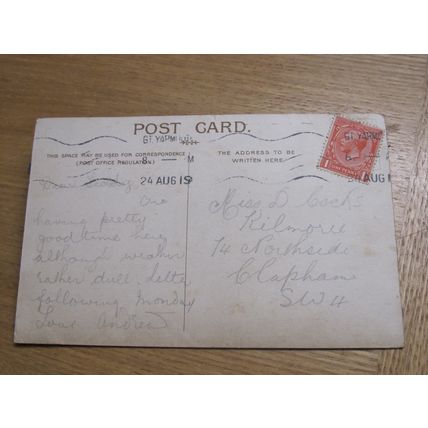 POST CARD.
GT. YARM
THIS SPACE MAY BE USED FOR CORRESPONDENCE
(POST OFFICE REGULATION)
THE ADDRESS TO BE
WRITTEN HERE
8 - M
24 AUG 19
GT. YARM
24 AUG 19
Dear
are
having pretty
good time here
although weather
rather dull.
following Monday
Love Andrea
Miss D Cocks
Kilmorie
74 Northside
Clapham
SW4